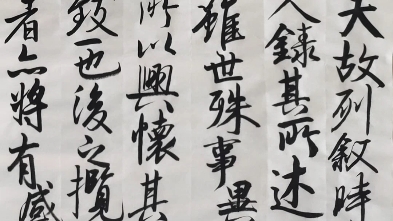 夫故列敘時
人錄其所述
雖世殊事異
所以興懷其
致一也後之攬
者亦將有感